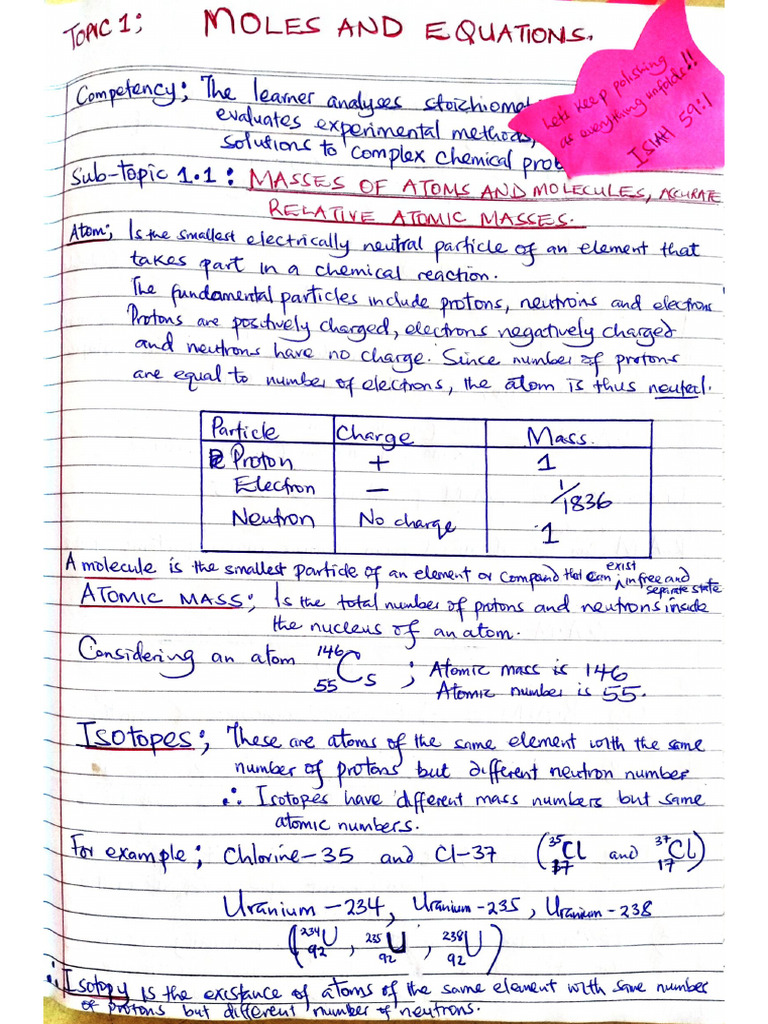 TOPIC 1: MOLES AND EQUATIONS.
Let's keep polishing
as everything unfolds!!
ISIAH 59:1
Competency; The learner analyses
evaluates experimental methods,
solutions to complex chemical
Sub-topic 1.1: MASSES OF ATOMS AND MOLECULES, ACCURATE
RELATIVE ATOMIC MASSES.
Atom; Is the smallest electrically neutral particle of an element that
takes part in a chemical reaction.
The fundamental particles include protons, neutrons and electrons
Protons are positively charged, electrons negatively charged
and neutrons have no charge. Since number of protons
are equal to number of electrons, the atom is thus neutral.
Particle Charge Mass.
Proton + 1
Electron − 1/1836
Neutron No charge 1
A molecule is the smallest particle of an element or compound that can exist in free and
separate state
ATOMIC MASS; Is the total number of protons and neutrons inside
the nucleus of an atom.
Considering an atom ¹⁴⁶₅₅Cs ; Atomic mass is 146
Atomic number is 55.
Isotopes; These are atoms of the same element with the same
number of protons but different neutron number
∴ Isotopes have different mass numbers but same
atomic numbers.
For example; Chlorine-35 and Cl-37 (³⁵₁₇Cl and ³⁷₁₇Cl)
Uranium-234, Uranium-235, Uranium-238
(²³⁴₉₂U, ²³⁵₉₂U, ²³⁸₉₂U)
∴ Isotopy is the existance of atoms of the same element with same number
of protons but different number of neutrons.